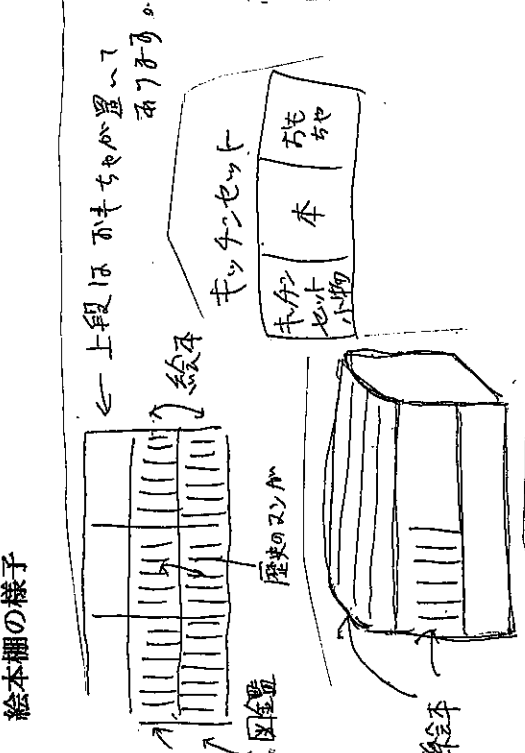 絵本棚の様子
←上段はおもちゃが置いて
あります。
絵本
歴史のマンガ
図鑑
キッチンセット
キッチン
セット
小物
本
おも
ちゃ
絵本